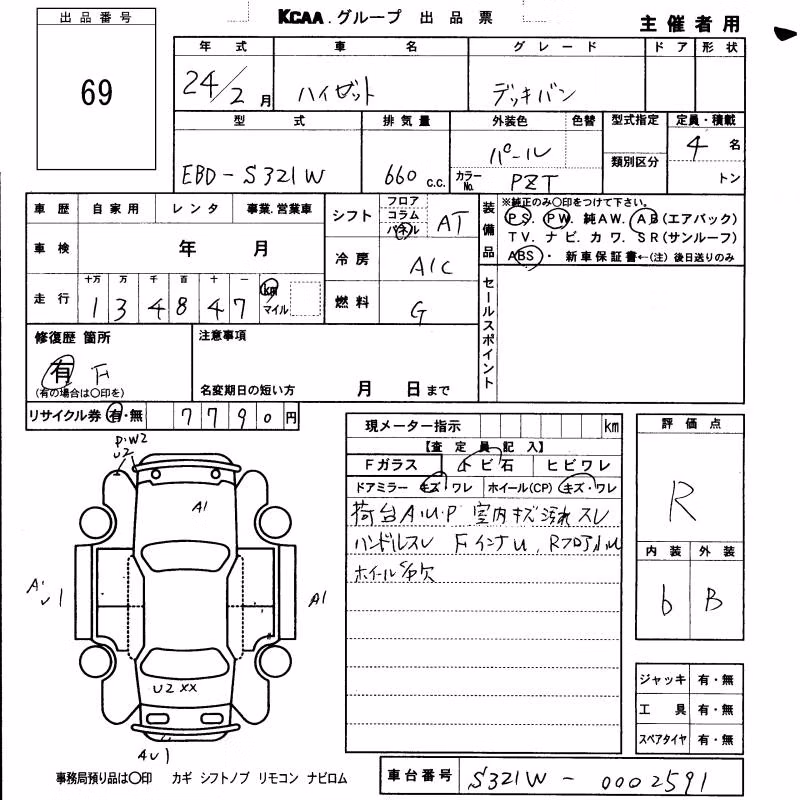 出品番号
69
KCAA.グループ 出品票
主催者用
年式 車名 グレード ドア 形状
24/2月 ハイゼット デッキバン
型式 排気量 外装色 色替 型式指定 定員・積載
EBD-S321W 660 c.c. パール 類別区分 4名
カラーNo. PZT トン
車歴 自家用 レンタ 事業.営業車
車検 年 月
走行 十万 万 千 百 十 一
1 3 4 8 4 7 km マイル
シフト フロア コラム パネル AT
冷房 A/C
燃料 G
装備品
※純正のみ〇印をつけて下さい。
PS. PW. 純AW. AB(エアバック)
TV. ナビ. カワ. SR(サンルーフ)
ABS・ 新車保証書←(注)後日送りのみ
セールスポイント
修復歴 箇所
有 F
(有の場合は〇印を)
注意事項
名変期日の短い方 月 日まで
リサイクル券 有・無 7790円
現メーター指示 km
【査定員記入】
Fガラス トビ石 ヒビワレ
ドアミラー キズ・ワレ ホイール(CP) キズ・ワレ
荷台A・U・P 室内キズ汚れスレ
ハンドルスレ FインナU、RフロアU
ホイール
評価点
R
内装 外装
b B
P・W2
U2
A1
A1
U2 XX
4U1
ジャッキ 有・無
工具 有・無
スペアタイヤ 有・無
事務局預り品は〇印 カギ シフトノブ リモコン ナビロム
車台番号 S321W - 0002591